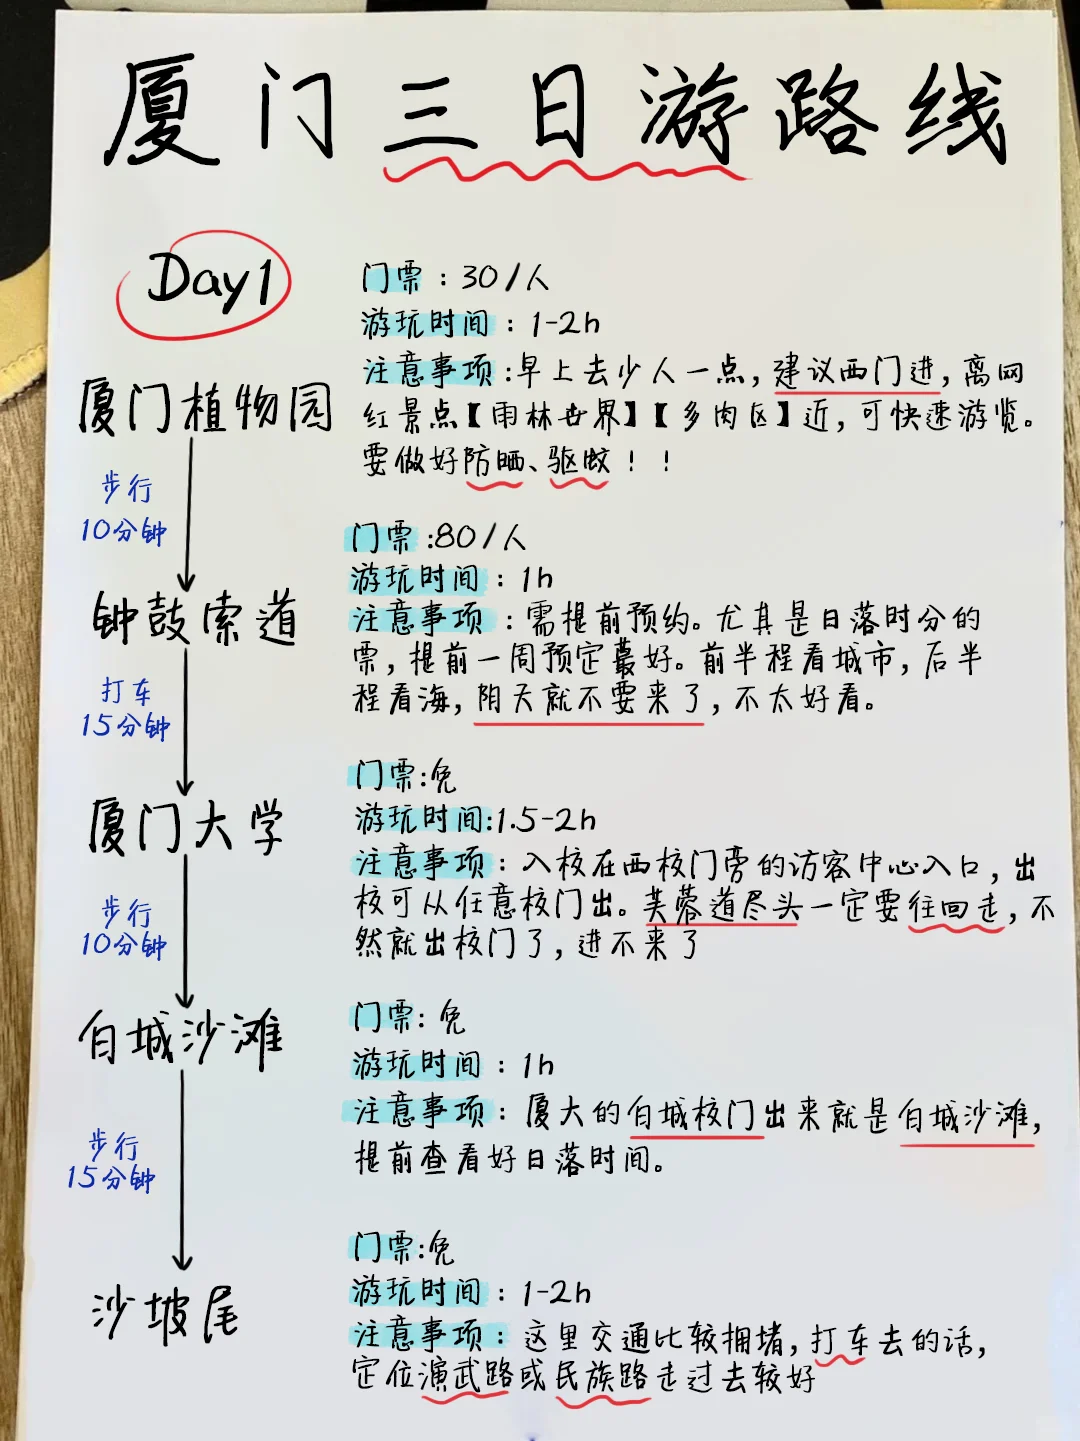 厦门三日游路线
Day1
门票：30/人
游玩时间：1-2h
注意事项:早上去少人一点，建议西门进，离网
红景点【雨林世界】【多肉区】近，可快速游览。
要做好防晒、驱蚊！！
厦门植物园
步行
10分钟
门票:80/人
游玩时间：1h
注意事项：需提前预约。尤其是日落时分的
票，提前一周预定最好。前半程看城市，后半
程看海，阴天就不要来了，不太好看。
钟鼓索道
打车
15分钟
门票:免
游玩时间:1.5-2h
注意事项：入校在西校门旁的访客中心入口，出
校可从任意校门出。芙蓉道尽头一定要往回走，不
然就出校门了，进不来了
厦门大学
步行
10分钟
门票：免
游玩时间：1h
注意事项：厦大的白城校门出来就是白城沙滩，
提前查看好日落时间。
白城沙滩
步行
15分钟
门票:免
游玩时间：1-2h
注意事项：这里交通比较拥堵，打车去的话，
定位演武路或民族路走过去较好
沙坡尾